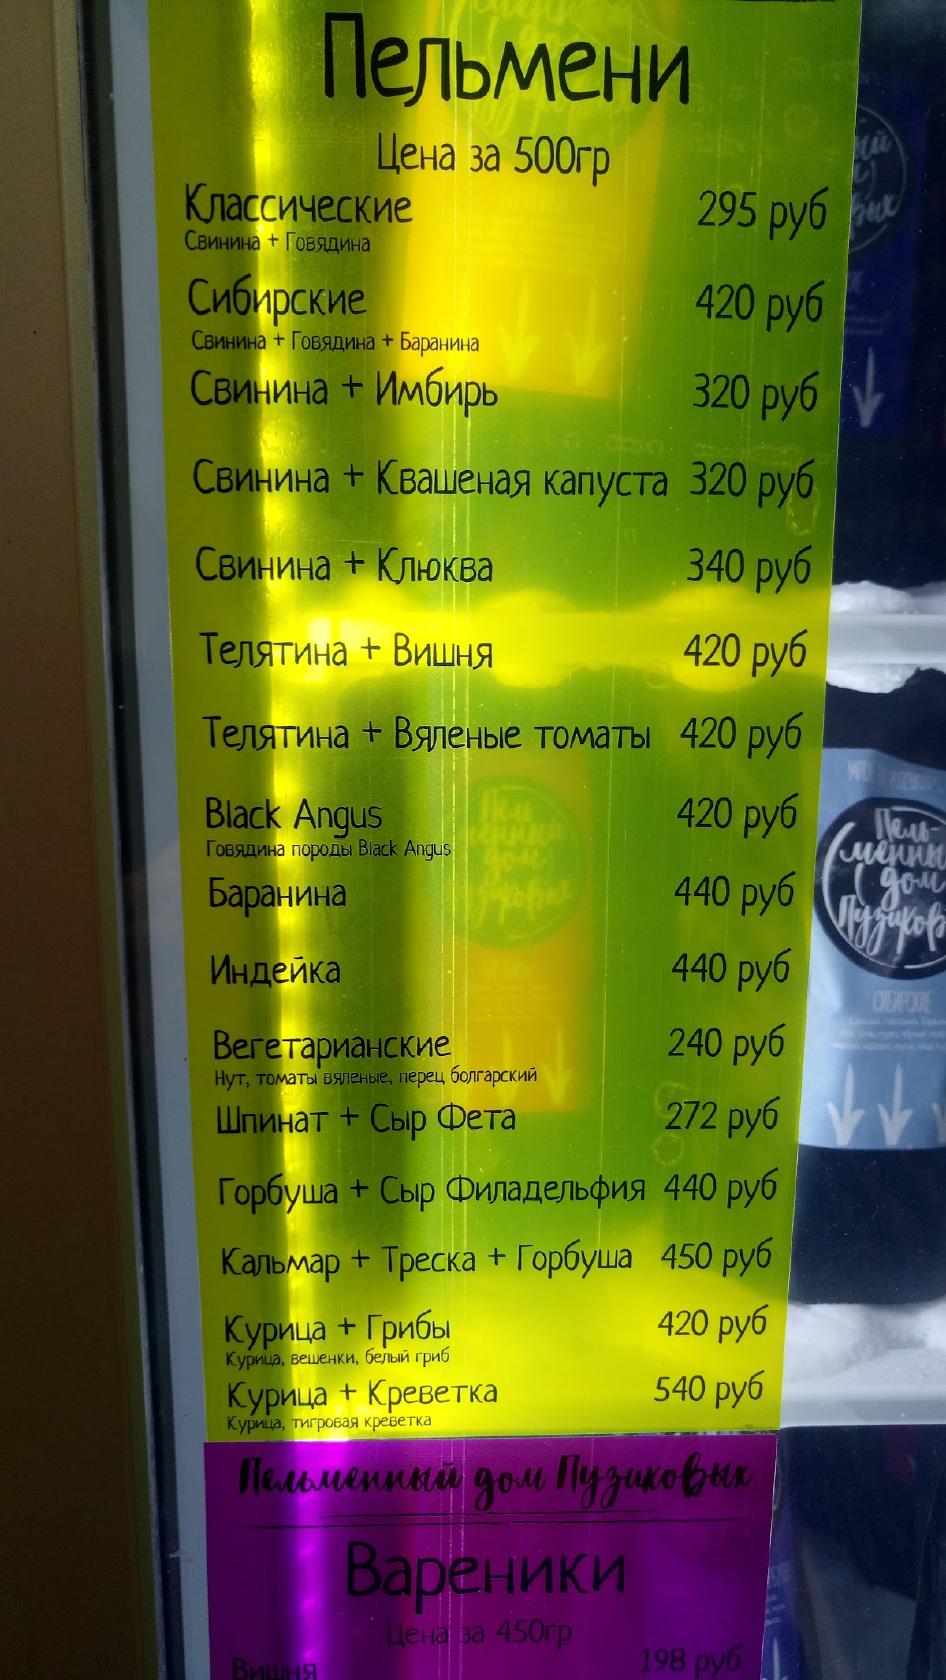 Пельмени
Цена за 500гр
Классические 295 руб
Свинина + Говядина
Сибирские 420 руб
Свинина + Говядина + Баранина
Свинина + Имбирь 320 руб
Свинина + Квашеная капуста 320 руб
Свинина + Клюква 340 руб
Телятина + Вишня 420 руб
Телятина + Вяленые томаты 420 руб
Black Angus 420 руб
Говядина породы Black Angus
Баранина 440 руб
Индейка 440 руб
Вегетарианские 240 руб
Нут, томаты вяленые, перец болгарский
Шпинат + Сыр Фета 272 руб
Горбуша + Сыр Филадельфия 440 руб
Кальмар + Треска + Горбуша 450 руб
Курица + Грибы 420 руб
Курица, вешенки, белый гриб
Курица + Креветка 540 руб
Курица, тигровая креветка
Пельменный дом Пузиковых
Вареники
Цена за 450гр
Вишня 198 руб
Пель-
менный
дом
Пузиков
СИБИРСКИЕ